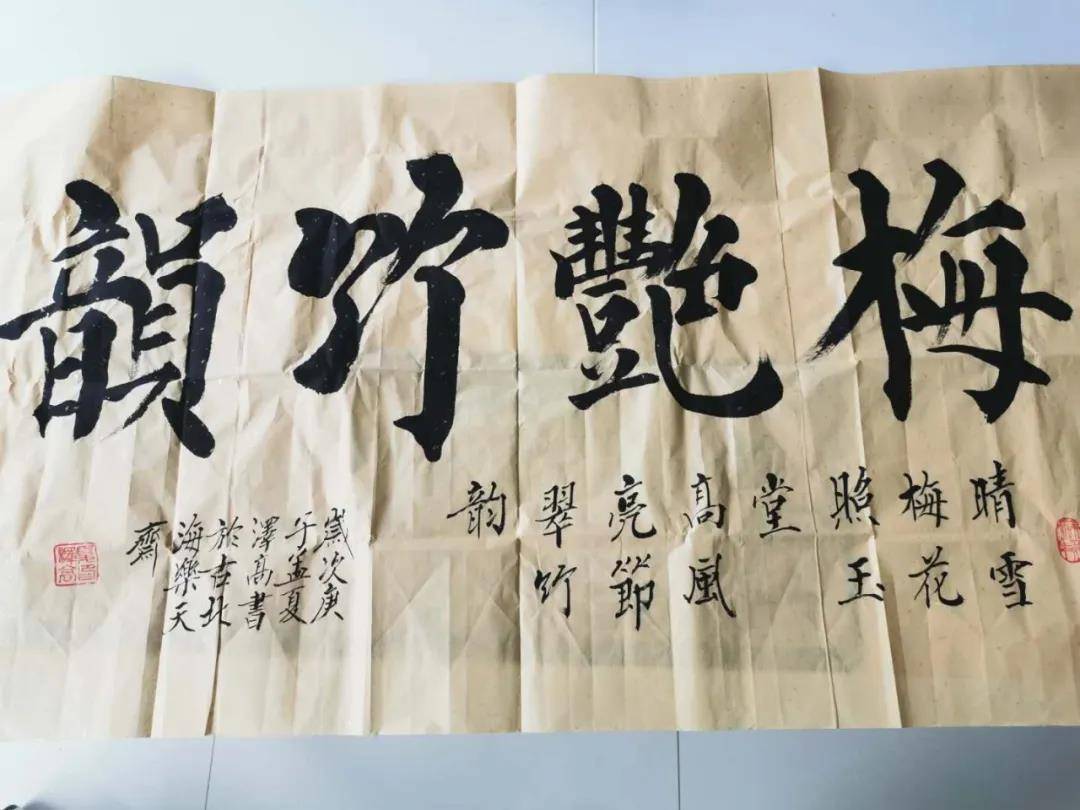 梅艷竹韻
晴雪
梅花
照玉
堂
高風
亮節
翠竹
韵
歲次庚
子孟夏
澤高書
於古北
海樂天
齋